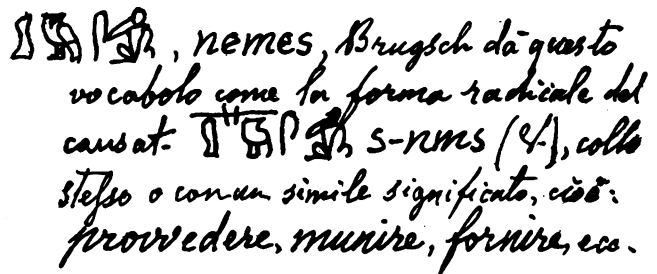 , nemes, Brugsch dà questo
vocabolo come la forma radicale del
causat. s-nms (V.), collo
stesso o con un simile significato, cioè:
provvedere, munire, fornire, ecc.